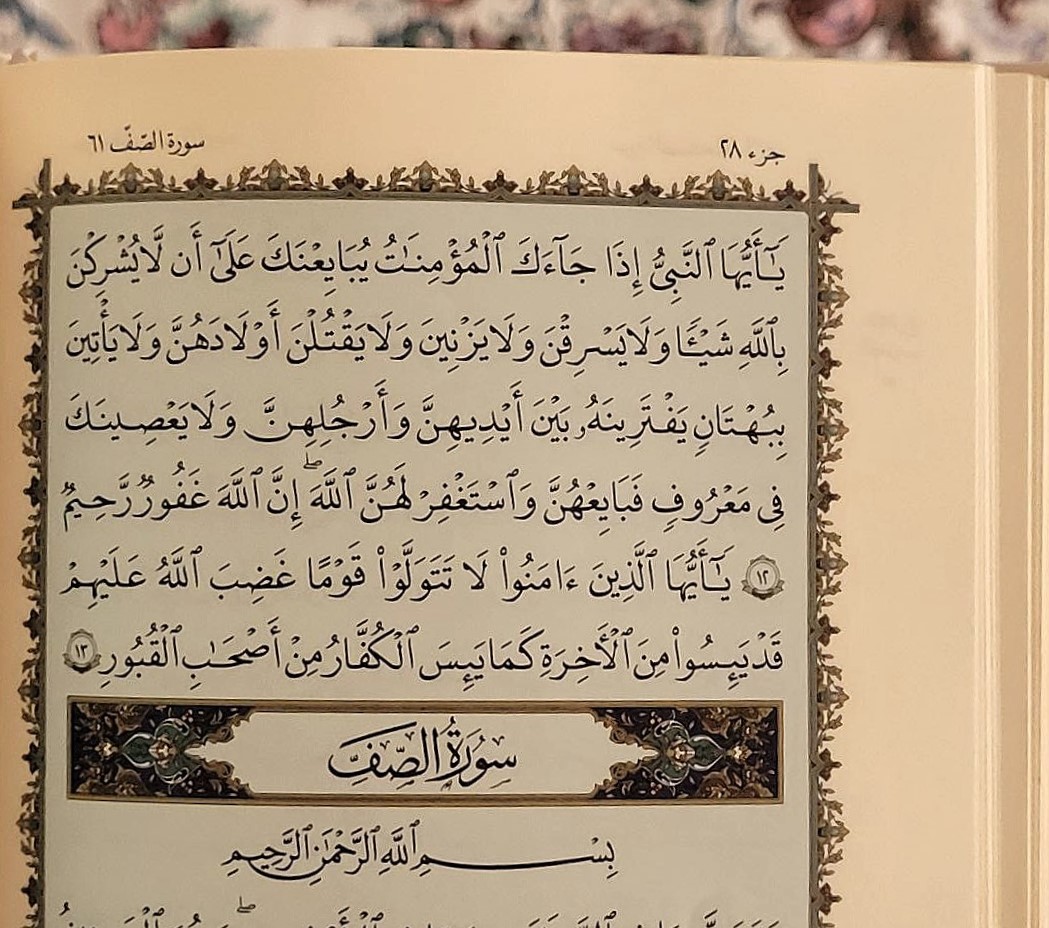 جزء ٢٨
سورة الصّفّ ٦١
يَٰٓأَيُّهَا ٱلنَّبِىُّ إِذَا جَآءَكَ ٱلْمُؤْمِنَٰتُ يُبَايِعْنَكَ عَلَىٰٓ أَن لَّا يُشْرِكْنَ
بِٱللَّهِ شَيْـًٔا وَلَا يَسْرِقْنَ وَلَا يَزْنِينَ وَلَا يَقْتُلْنَ أَوْلَٰدَهُنَّ وَلَا يَأْتِينَ
بِبُهْتَٰنٍ يَفْتَرِينَهُۥ بَيْنَ أَيْدِيهِنَّ وَأَرْجُلِهِنَّ وَلَا يَعْصِينَكَ
فِى مَعْرُوفٍ فَبَايِعْهُنَّ وَٱسْتَغْفِرْ لَهُنَّ ٱللَّهَ ۖ إِنَّ ٱللَّهَ غَفُورٌ رَّحِيمٌ
١٢ يَٰٓأَيُّهَا ٱلَّذِينَ ءَامَنُوا۟ لَا تَتَوَلَّوْا۟ قَوْمًا غَضِبَ ٱللَّهُ عَلَيْهِمْ
قَدْ يَئِسُوا۟ مِنَ ٱلْـَٔاخِرَةِ كَمَا يَئِسَ ٱلْكُفَّارُ مِنْ أَصْحَٰبِ ٱلْقُبُورِ ١٣
سُورَةُ الصَّفِّ
بِسْمِ ٱللَّهِ ٱلرَّحْمَٰنِ ٱلرَّحِيمِ